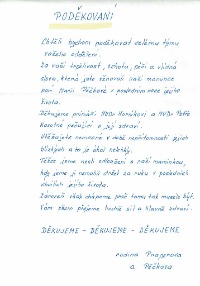 PODĚKOVÁNÍ
Chtěli bychom poděkovat celému týmu
vašeho zařízení.
Za vaši trpělivost, ochotu, péči a vlídná
slova, která jste věnovali naší mamince
paní Marii Péčkové v posledním roce jejího
života.
Děkujeme primáři MUDr. a MUDr. Petře
za péči o její zdraví.
v době nepřítomnosti jejích
blízkých a to je však nelehký.
Těžce jsme nesli odloučení s naší maminkou,
kdy jsme ji nemohli držet za ruku v posledních
chvílích jejího života.
Zároveň však chápeme proč tomu tak muselo být.
Vám všem přejeme hodně sil a hlavně zdraví.
DĚKUJEME - DĚKUJEME - DĚKUJEME
rodina
a Péčkova